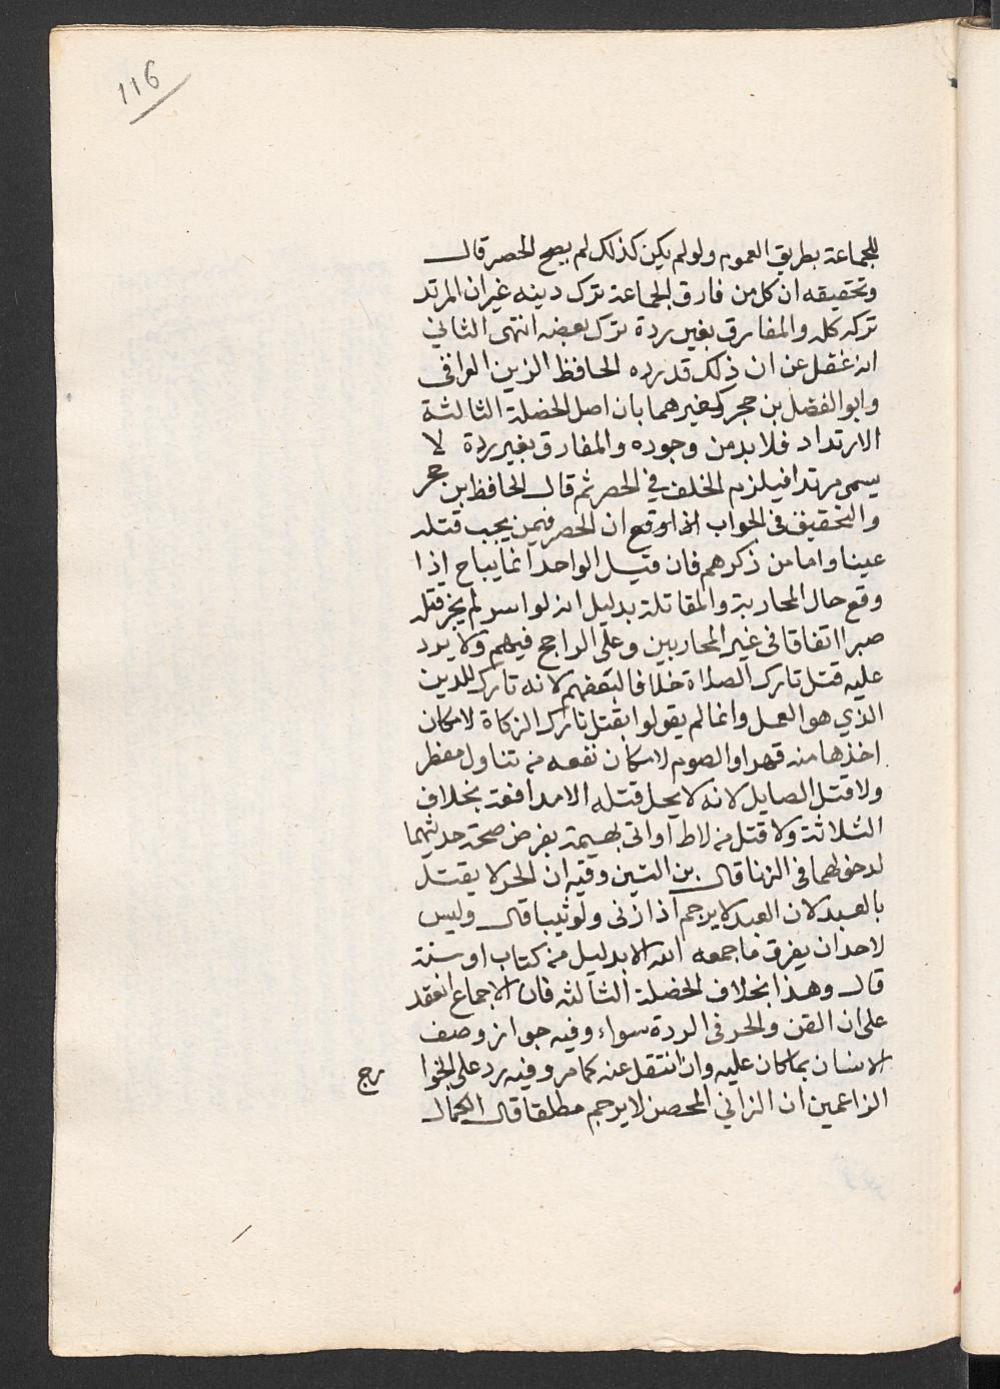 116
للجماعة بطريق العموم ولو لم يكن كذلك لم يصح الحصر قال
وتحقيقه ان كل من فارق الجماعة ترك دينه غير ان المرتد
تركه كله والمفارق بغير ردة ترك بعضه انتهى الثاني
انه غفل عن ان ذلك قد رده الحافظ الزين العراقي
وابو الفضل بن حجر كغيرهما بان اصل الخصلة الثالثة
الارتداد فلا بد من وجوده والمفارق بغير ردة لا
يسمى مرتدا فيلزم الخلف في الحصر ثم قال الحافظ بن حجر
والتحقيق في الجواب ان الحصر فيمن يجب قتله
عينا واما من ذكرهم فان قتل الواحد انما يباح اذا
وقع حال المحاربة والمقاتلة بدليل انه لو اسر لم يجز قتله
صبرا اتفاقا في غير المحاربين وعلى الراجح فيهم ولا يرد
عليه قتل تارك الصلاة خلافا لبعضهم لانه تارك للدين
الذي هو العمل وانما لم يقولوا بقتل تارك الزكاة لامكان
اخذها منه قهرا والصوم لامكان نفعه من تناول مفطر
ولا قتل الصايل لانه لا يحل قتله الا مدافعة بخلاف
الثلاثة ولا قتل من لاط او اتى بهيمة بفرض صحة حديثهما
لدخولهما في الزنا قال بن التين وفيه ان الحر لا يقتل
بالعبد لان العبد لا يرجم اذا زنى ولو ثيبا قال وليس
لاحد ان يفرق ما جمعه الله الا بدليل من كتاب او سنة
قال وهذا بخلاف الخصلة الثالثة فان الاجماع انعقد
على ان القن والحر في الردة سواء وفيه جواز وصف
الانسان بما كان عليه وان انتقل عنه كما مر وفيه رد على الخوا رج
الزاعمين ان الزاني المحصن لا يرجم مطلقا قال الكمال